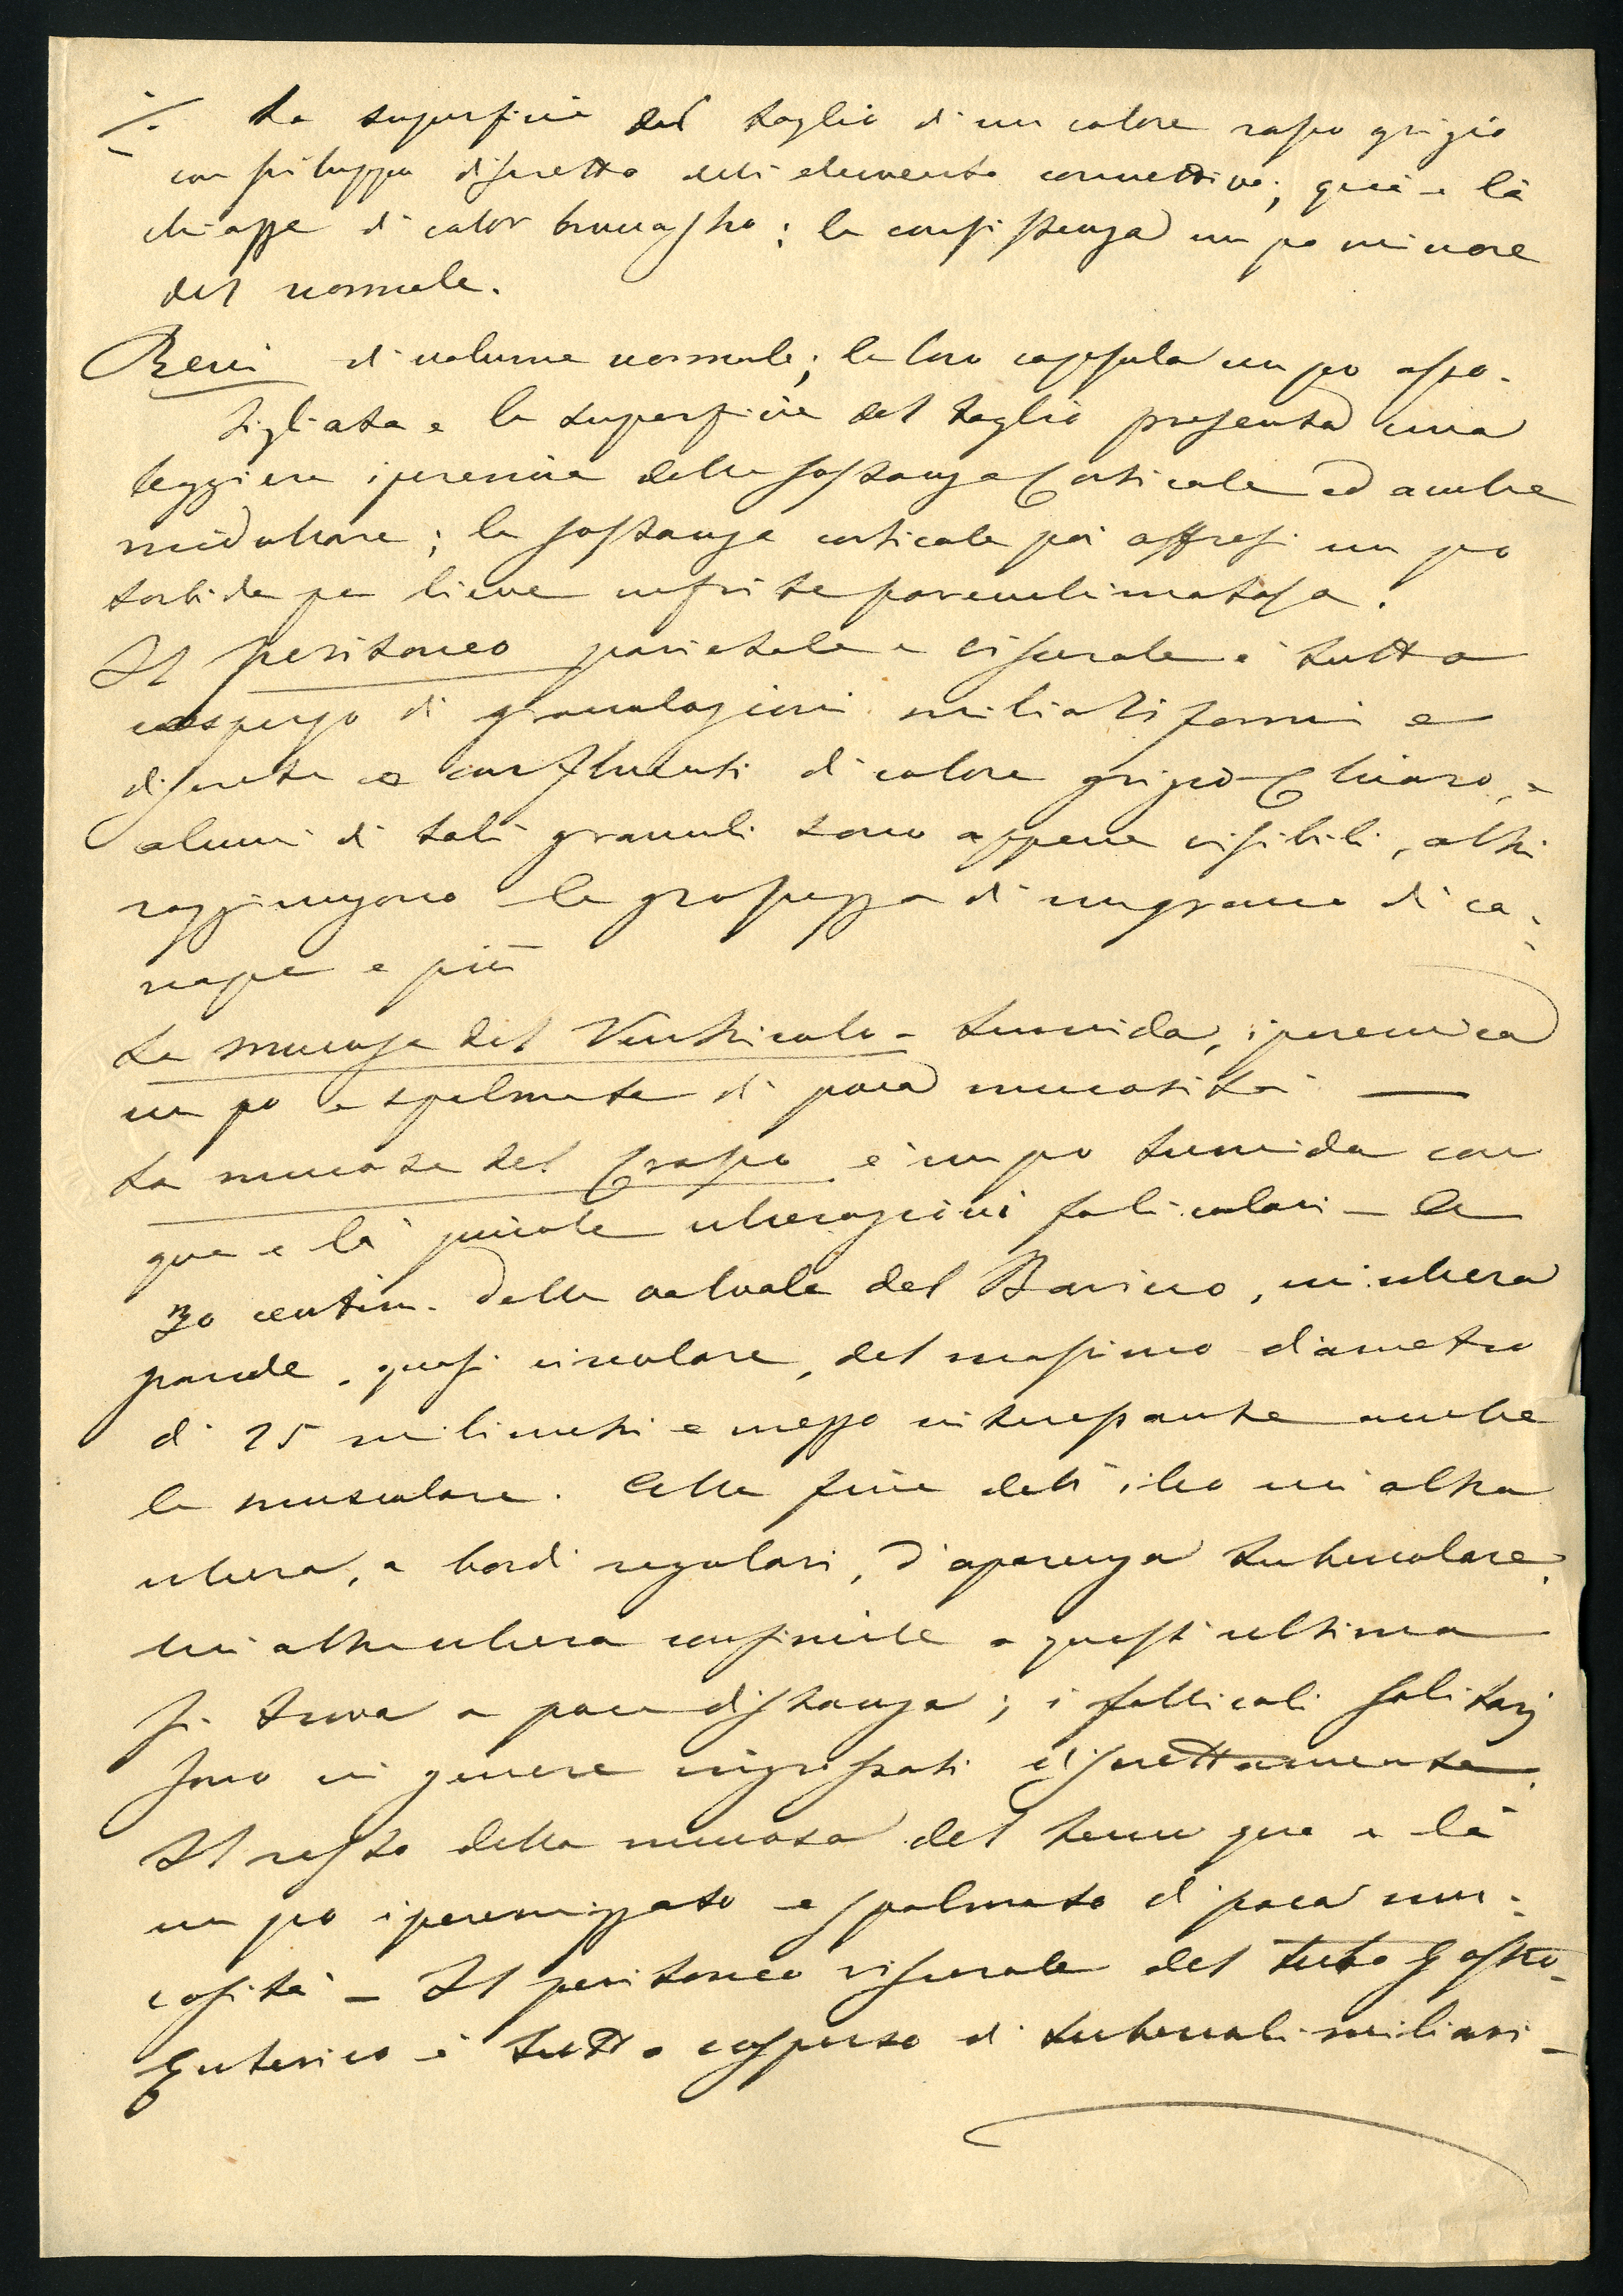 ·/. La superficie del taglio di un colore rosso grigio
con sviluppo discretto dell'elemento connettivo; quà e là
chiazze di color brunastro; la consistenza un po minore
del normale.
Reni di volume normale; la loro capsula un po asso-
tigliata e la superficie del taglio presenta una
leggiera iperemia della sostanza corticale ed anche
midollare; la sostanza corticale poi offresi un po
torbida per lieve nefrite parenchimatosa.
Il peritoneo parietale e viscerale è tutto
cosperso di granulazioni miliariformi e
discrete e confluenti di colore grigio-chiaro, e
alcuni di tali granuli sono appena visibili, altri
raggiungono la grossezza di un grano di ca-
napa e più
La mucosa del Ventricolo - tumida, iperemica
un po e spalmata di poca mucosità —
La mucosa del crasso è un po tumida con
qua e là piccole ulcerazioni follicolari - A
30 centim. dalla valvola del Bavino, un'ulcera
grande, quasi circolare, del massimo diametro
di 25 milimetri e mezzo interessante anche
la muscolare. Alla fine dell'ileo un'altra
ulcera, a bordi regolari, d'aparenza tubercolare.
Un'altra ulcera consimile a quest'ultima
si trova a poca distanza; i follicoli solitarj
sono in genere ingrossati discrettamente.
Il resto della mucosa del tenue qua e là
un po iperemizzato e spalmato di poca mu-
cosità - Il peritoneo viscerale del tubo gastro-
enterico è tutto cosperso di tubercoli miliari -